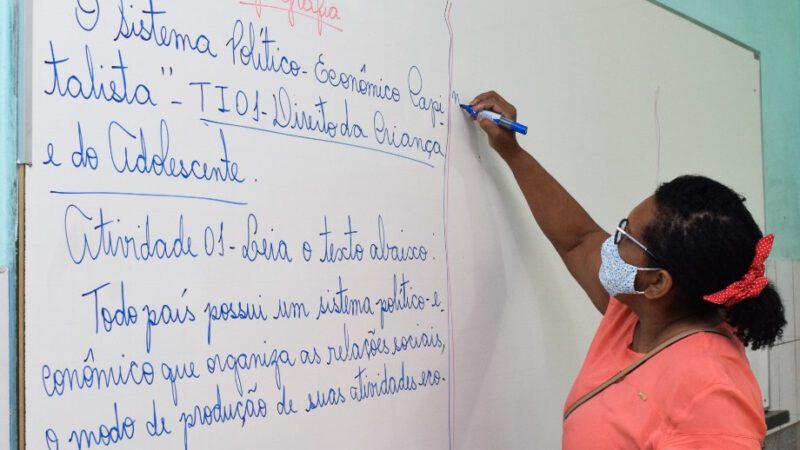 Geografia
"O Sistema Político-Econômico Capi-
talista" - TI01 - Direito da Criança
e do Adolescente.
Atividade 01 - Leia o texto abaixo:
Todo país possui um sistema político-e-
conômico que organiza as relações sociais,
o modo de produção de suas atividades eco-